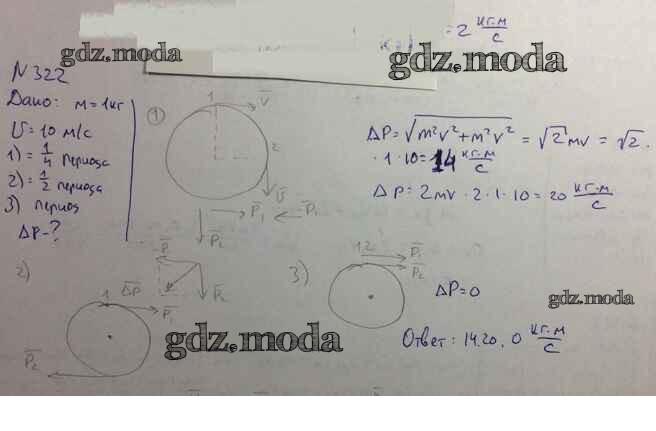 = 2 кг·м/с
gdz.moda
gdz.moda
N 322
Дано: m = 1 кг
V = 10 м/с
1) = 1/4 периода
2) = 1/2 периода
3) период
ΔP - ?
①
1
V
2
V
P₁
P₁
P₂
ΔP = √(m²V² + m²V²) = √2 mV = √2 ·
· 1 · 10 = 14 кг·м/с
ΔP = 2mV · 2 · 1 · 10 = 20 кг·м/с
P
P₂
ΔP
2)
1
P₁
P₂
3)
1,2
P₁
P₂
ΔP = 0
gdz.moda
gdz.moda
Ответ: 14.20, 0 кг·м/с